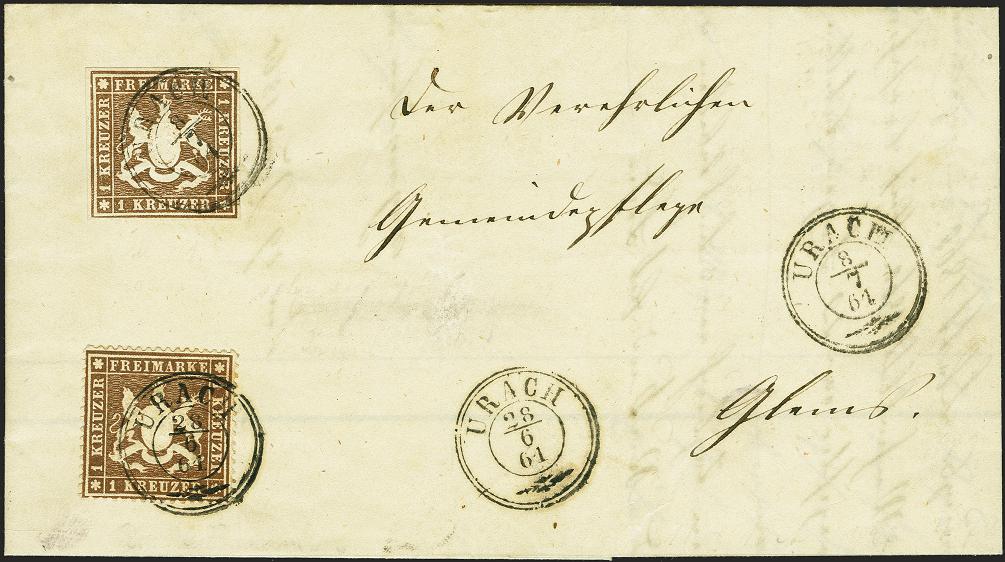 FREIMARKE
1 KREUZER
1 KREUZER
1 KREUZER
URACH
8/7
Der Verehrlichen
Gemeindepflege
URACH
8/7
61
Glems.
FREIMARKE
1 KREUZER
1 KREUZER
1 KREUZER
URACH
28/6
61
URACH
28/6
61